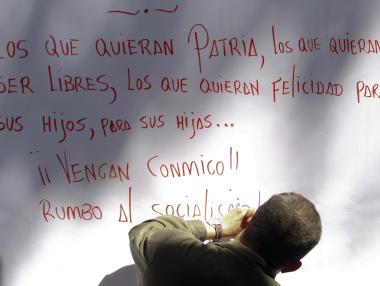 LOS QUE QUIERAN PATRIA, LOS QUE QUIERAN
SER LIBRES, LOS QUE QUIERAN FELICIDAD PARA
SUS HIJOS, PARA SUS HIJAS...
¡¡VENGAN CONMIGO!!
RUMBO Al SOCIALISMO!